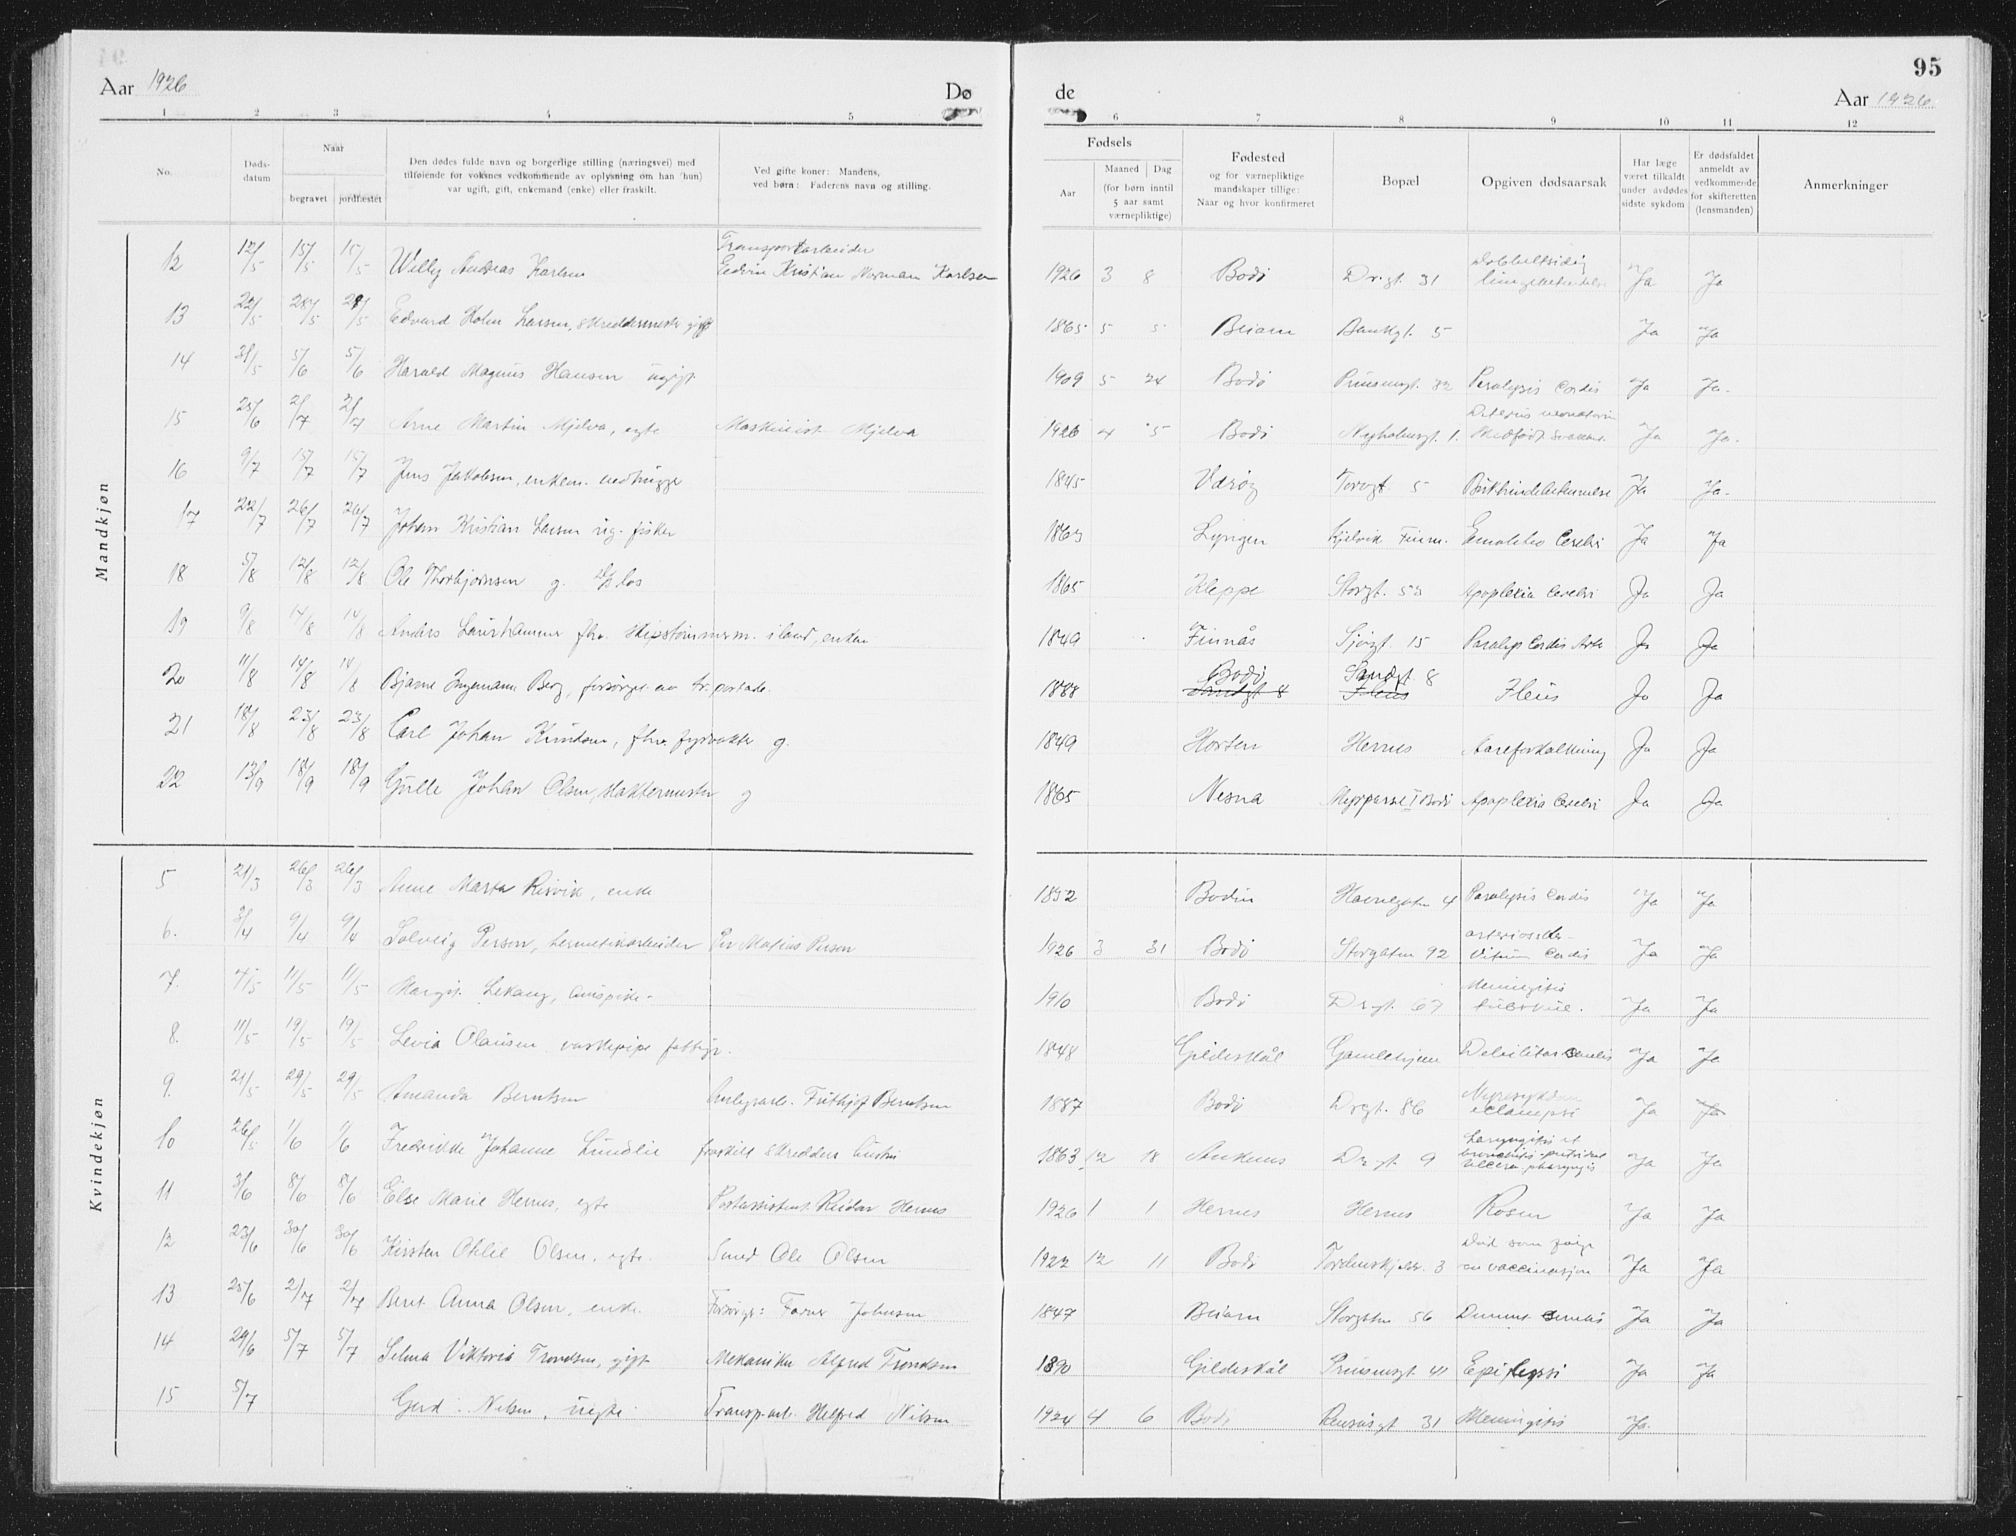 95
Aar 1926 Dø de Aar 1926
1 2 3 4 5 6 7 8 9 10 11 12
No. Døds-datum Naar begravet jordfæstet Den dødes fulde navn og borgerlige stilling (næringsvei) med tilføiende for voksnes vedkommende av oplysning om han (hun) var ugift, gift, enkemand (enke) eller fraskilt. Ved gifte koner: Mandens, ved børn: Faderens navn og stilling. Fødsels Aar Maaned Dag (for børn inntil 5 aar samt værnepliktige) Fødested og for værnepliktige mandskaper tillige: Naar og hvor konfirmeret Bopæl Opgiven dødsaarsak Har læge været tilkaldt under avdødes sidste sykdom Er dødsfaldet anmeldt av vedkommende for skifteretten (lensmanden) Anmerkninger
Mandkjøn
12 12/5 15/5 15/5 Willy Andreas Karlsen Transportarbeider Edvin Kristian Norman Karlsen 1926 3 8 Bodø Drgt. 31 Dobbeltsidig Ja Ja
13 22/5 28/5 28/5 Edvard Holm Larsen, skreddermester gift 1865 5 5 Beiarn Bankgt. 5 Ja Ja
14 31/5 5/6 5/6 Harald Magnus Hansen ugift 1909 5 24 Bodø Prinsensgt. 82 Paralysis Cordis Ja Ja
15 25/6 2/7 2/7 Arne Martin Mjelva, egte Maskinist Mjelva 1926 4 5 Bodø Nyholmsgt. 1. Ikterus neonatorum Medfødt svakhet Ja Ja
16 9/7 15/7 15/7 Jens Jakobsen, enkem. vedhugger 1845 Værøy Torvgt. 5 Bukhindebetennelse Ja Ja
17 22/7 26/7 26/7 Johan Kristian Larsen ug. fisker 1863 Lyngen Kjelvik Finm. Ja Ja
18 5/8 12/8 12/8 Ole Thorbjørnsen g. los 1865 Kleppe Storgt. 53 Apoplexia Cerebri Ja Ja
19 9/8 14/8 14/8 Anders fhv. skipstømmerm. enkem 1849 Finnås Sjøgt. 15 Paralys Cordis Ja Ja
20 11/8 14/8 14/8 Bjarne Ingemann Berg, forsørget av 1888 Bodø Sandgt 8 Sandgt 8 Ileus Ileus Ja Ja
21 18/8 23/8 23/8 Carl Johan Knutsen, fhv. fyrvokter g. 1849 Horten Hernes Aareforkalkning Ja Ja
22 13/9 18/9 18/9 Gulle Johan Olsen, Maktermester g 1865 Nesna I Bodø Apoplexia Cerebri Ja Ja
Kvindekjøn
5 21/3 26/3 26/3 Anne Marta Risvik, enke 1852 Bodin Havnegaten 4 Paralysis Cordis Ja Ja
6. 3/4 9/4 9/4 Solveig Person, hermetikarbeider Per Matias Person 1926 3 31 Bodø Storgaten 92 Vitium Cordis Ja Ja
7. 4/5 11/5 11/5 Margit Lekang, huspike 1910 Bodø Drgt. 67 Meningitis tuberkul. Ja Ja
8. 11/5 19/5 19/5 Levia Olausen vaskepige fattigv. 1848 Gildeskål Gamlehjem Debilitas senilis Ja Ja
9. 21/5 29/5 29/5 Amanda Berntsen Anlegsarb. Frithjof Berntsen 1887 Bodø Drgt. 86 Nyresykdom eclampsi Ja Ja
10 26/5 1/6 1/6 Fredrikke Johanne Lundlie fraskilt skredders hustru 1863 12 18 Ankenes Drgt. 9 Laryngitis et bronchitis putrida Ja Ja
11 3/6 8/6 8/6 Else Marie Hernes, egte Postassistent Reidar Hernes 1926 1 1 Hernes Hernes Rosen Ja Ja
12 23/6 30/6 30/6 Kirsten Otilie Olsen, egte Smed Ole Olsen 1922 12 11 Bodø Tordenskjoldsgt. 3 Død som følge av vaccinasjon Ja Ja
13 25/6 2/7 2/7 Berit Anna Olsen, enke Forsørget: Johnsen 1847 Beiarn Storgaten 56 Ja Ja
14 29/6 5/7 5/7 Selma Viktoria Trondsen, gift Mekaniker Alfred Trondsen 1890 Gildeskål Prinsensgt. 41 Epilepsi Ja Ja
15 5/7 Gerd Nilsen, uegte Transp.arb. Helfred Nilsen 1924 4 6 Bodø Rensåsgt 31 Meningitis Ja